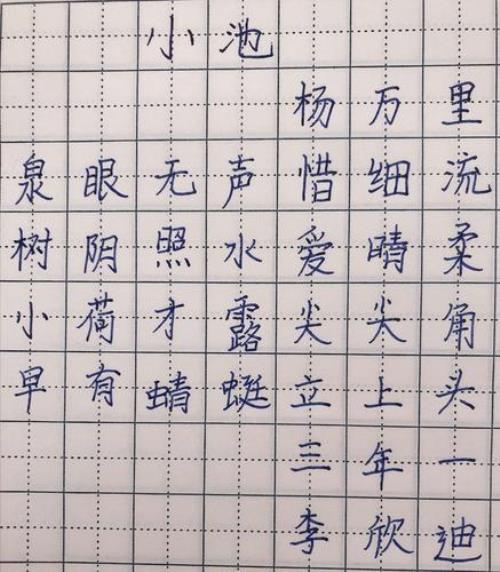 小池
杨万里
泉眼无声惜细流
树阴照水爱晴柔
小荷才露尖尖角
早有蜻蜓立上头
三年一
李欣迪